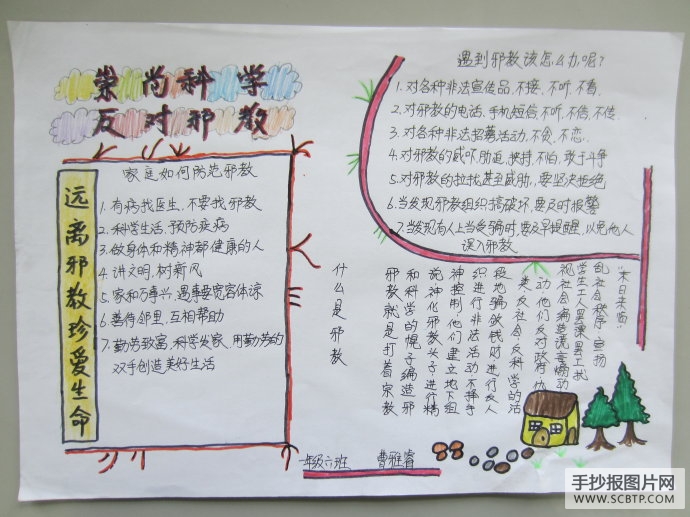 崇尚科学
反对邪教
家庭如何防范邪教
1. 有病找医生，不要找邪教
2. 科学生活，预防疾病
3. 做身体和精神都健康的人
4. 讲文明，树新风
5. 家和万事兴，遇事要宽容体谅
6. 善待邻里，互相帮助
7. 勤劳致富，科学发家，用勤劳的
双手创造美好生活
远离邪教珍爱生命
遇到邪教该怎么办呢？
1. 对各种非法宣传品，不接、不听、不看。
2. 对邪教的电话、手机短信不听、不信、不传。
3. 对各种非法招募活动，不贪、不恋。
4. 对邪教的威吓、胁迫、挟持不怕、敢于斗争
5. 对邪教的拉拢甚至威胁，要坚决拒绝
6. 当发现邪教组织搞破坏，要及时报警
7. 当发现有人上当受骗时，要及早提醒，以免他人
误入邪教。
什么是邪教
邪教就是打着宗教
和科学的幌子编造邪
说神化邪教头子进行精
神控制他们建立地下组
织进行非法活动不择手
段地骗敛钱财进行反人
类反社会反科学的活
动他们反对政府
视社会病造谎言煽动
学生工人罢课罢工扰
乱社会秩序宣扬
“末日来临”
一年级六班 曹雅睿
手抄报图片网
WWW.SCBTP.COM